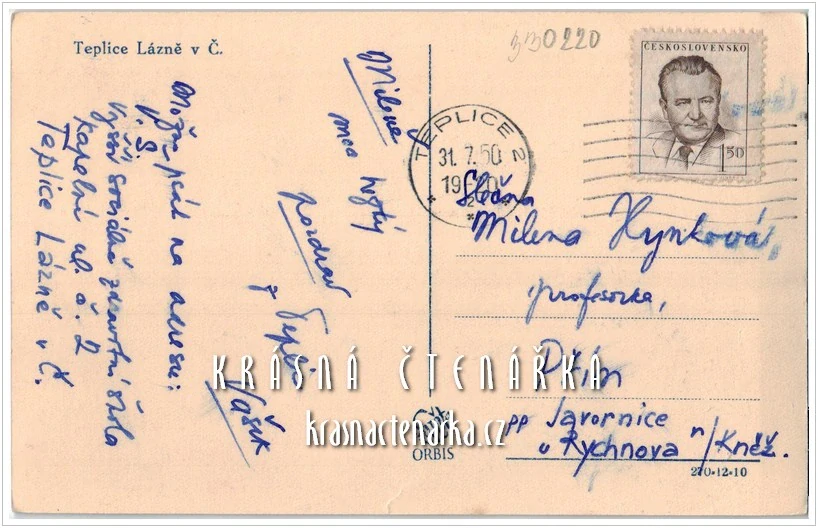 Teplice Lázně v Č.
330220
ČESKOSLOVENSKO
1 50
TEPLICE 2
31.7.50
19-20
2
Milena
moc hezký
pozdrav
z Teplic
Vašek
Možn psát na adresu:
V. S.
Vyšší sociálně zdravotní škola
Kapelní ul. č. 2
Teplice Lázně v Č.
Slečna
Milena Hynková,
profesorka,
Ptín
pp Javornice
u Rychnova n/Kněž.
KRÁSNÁ ČTENÁŘKA
krasnactenarka.cz
ORBIS
270-12-10